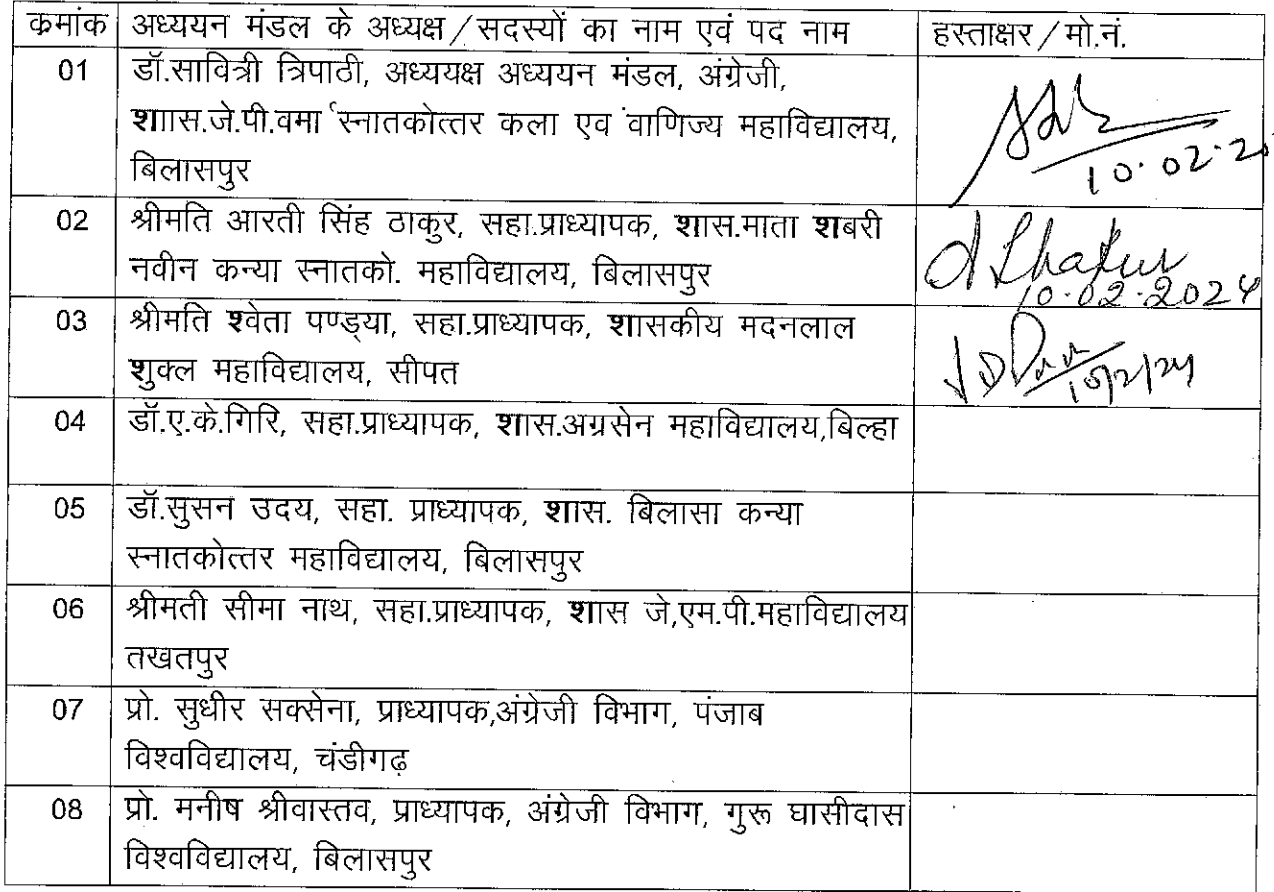 क्रमांक अध्ययन मंडल के अध्यक्ष / सदस्यों का नाम एवं पद नाम हस्ताक्षर / मो.नं.
01 डॉ.सावित्री त्रिपाठी, अध्ययक्ष अध्ययन मंडल, अंग्रेजी,
शाास.जे.पी.वमा र्स्नातकोत्तर कला एव ंवाणिज्य महाविद्यालय,
बिलासपुर
10.02.2
02 श्रीमति आरती सिंह ठाकुर, सहा.प्राध्यापक, शास.माता शबरी
नवीन कन्या स्नातको. महाविद्यालय, बिलासपुर
Thakur
10.02.2024
03 श्रीमति श्वेता पण्ड्या, सहा.प्राध्यापक, शासकीय मदनलाल
शुक्ल महाविद्यालय, सीपत
10/2/24
04 डॉ.ए.के.गिरि, सहा.प्राध्यापक, शास.अग्रसेन महाविद्यालय,बिल्हा
05 डॉ.सुसन उदय, सहा. प्राध्यापक, शास. बिलासा कन्या
स्नातकोत्तर महाविद्यालय, बिलासपुर
06 श्रीमती सीमा नाथ, सहा.प्राध्यापक, शास जे,एम.पी.महाविद्यालय
तखतपुर
07 प्रो. सुधीर सक्सेना, प्राध्यापक,अंग्रेजी विभाग, पंजाब
विश्वविद्यालय, चंडीगढ़
08 प्रो. मनीष श्रीवास्तव, प्राध्यापक, अंग्रेजी विभाग, गुरू घासीदास
विश्वविद्यालय, बिलासपुर